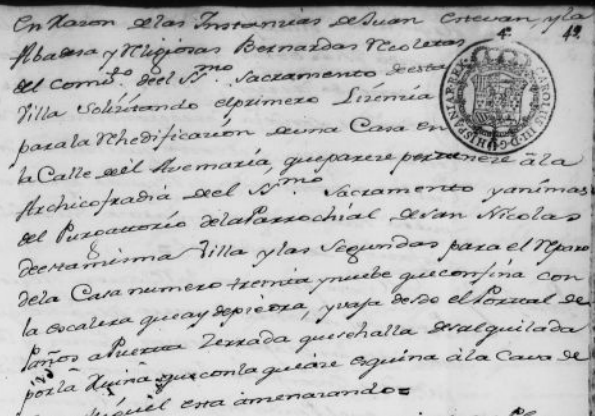 En Razon delas Instancias de Juan Estevan, y la
Abadesa y Religiosas Bernardas Recoletas
del Comb.to deel SS.mo Sacramento deesta
Villa Solizitando elprimero Lizencia
para la Rhedificazion deuna Casa en
la Calle deel Avemaría, queparece pertenece âla
Archicofradia deel SS.mo Sacramento yanimas
del Purgattorio delaParrochial deSan Nicolas
deestamisma Villa ylas Segundas para el Reparo
dela Casa numero treinta ynuebe queconfina con
la escalera queay depiedra, yvaja desdo el Portal de
Paños aPuerta Zerrada quesehalla desalquilada
porla Ruina queconla quiaze esquina âla Cava de
esta amenazando=
4.º 49
CAROLUS III D G HISPANIAR REX